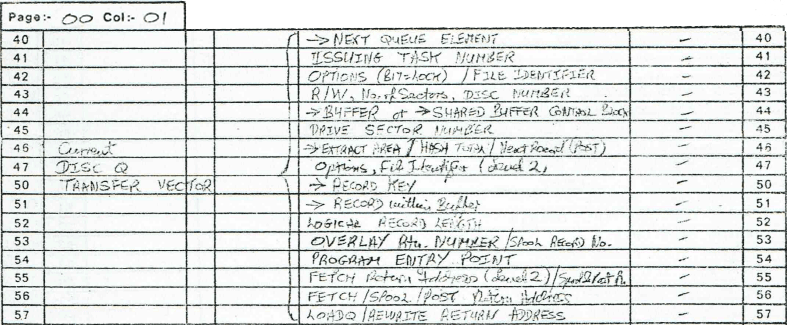 Page:- 00 Col:- 01
40 → NEXT QUEUE ELEMENT – 40
41 ISSUING TASK NUMBER – 41
42 OPTIONS (BIT=LOCK) / FILE IDENTIFIER – 42
43 R/W, No. of Sectors, DISC NUMBER – 43
44 → BUFFER or → SHARED BUFFER CONTROL Block – 44
45 DRIVE SECTOR NUMBER – 45
46 Current → EXTRACT AREA / HASH TOTAL / Next Record (POST) – 46
47 DISC Q Options, File Identifier (Level 2) – 47
50 TRANSFER VECTOR → RECORD KEY – 50
51 → RECORD within Buffer – 51
52 LOGICAL RECORD LENGTH – 52
53 OVERLAY Rtn. NUMBER / SPOOL RECORD No. – 53
54 PROGRAM ENTRY POINT – 54
55 FETCH Return Address (Level 2) / – 55
56 FETCH / SPOOL / POST Return Address – 56
57 LOADQ / REWRITE RETURN ADDRESS – 57